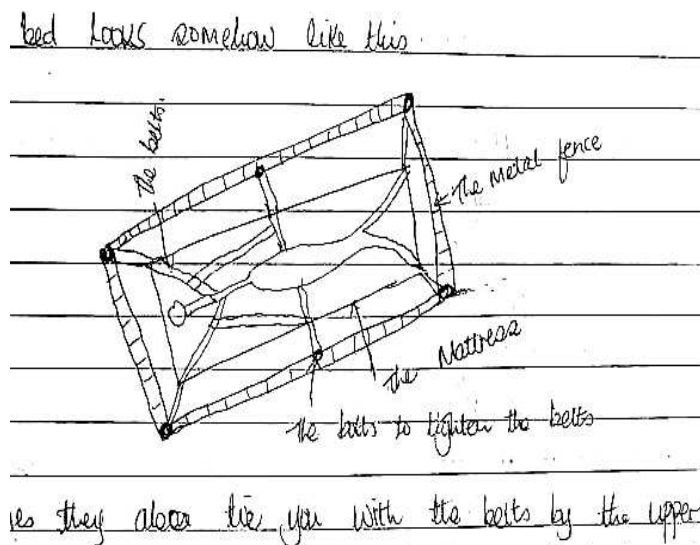 bed looks somehow like this.
The belts.
The Metal fence
The Mattress
The bolts to tighten the belts
es they also tie you with the belts by the upper